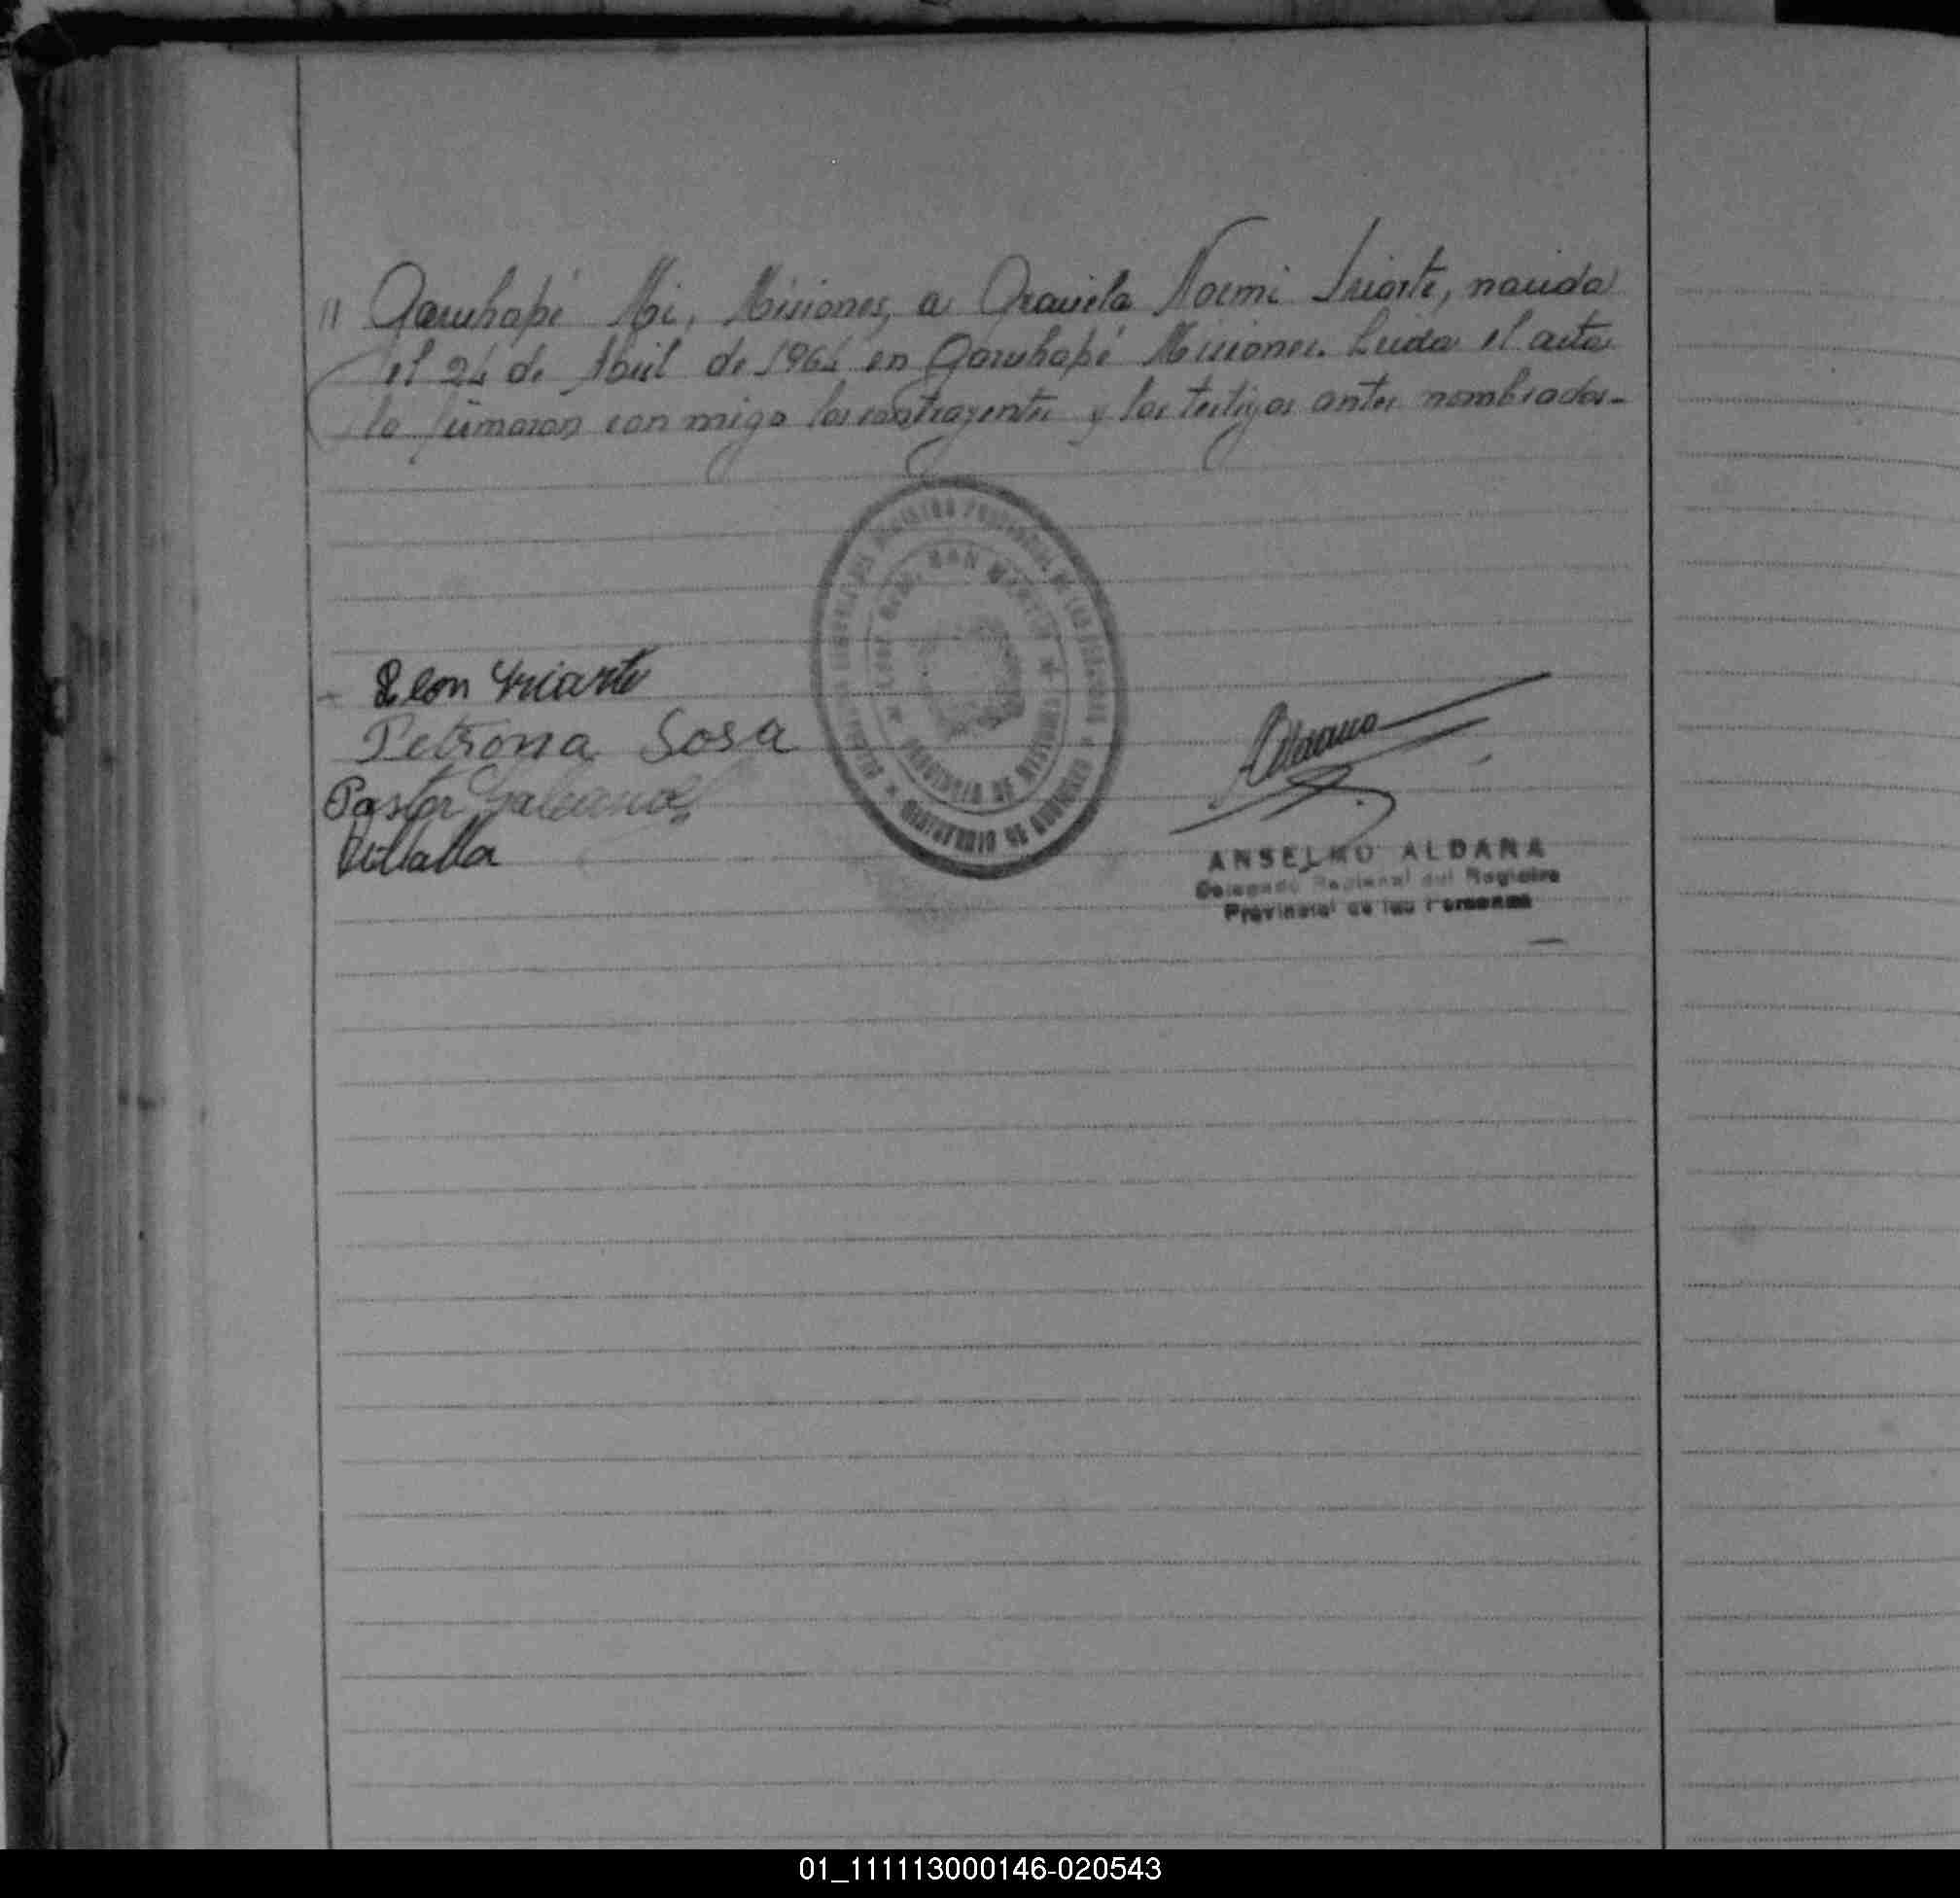 " Garuhapé Mi, Misiones, a Graciela Noemi Iriarte, nacida
el 24 de Abril de 1964 en Garuhapé Misiones. Leida el acta
la firmaron con migo los contrayentes y los testigos antes nombrados.-
REGISTRO PROVINCIAL DE LAS PERSONAS
GRAL. SAN MARTIN
PROVINCIA DE MISIONES
Leon Iriarte
Petrona Sosa
Pastor Galeano
Villalla
Aldana
ANSELMO ALDANA
Delegado Regional del Registro
Provincial de las Personas
01_111113000146-020543